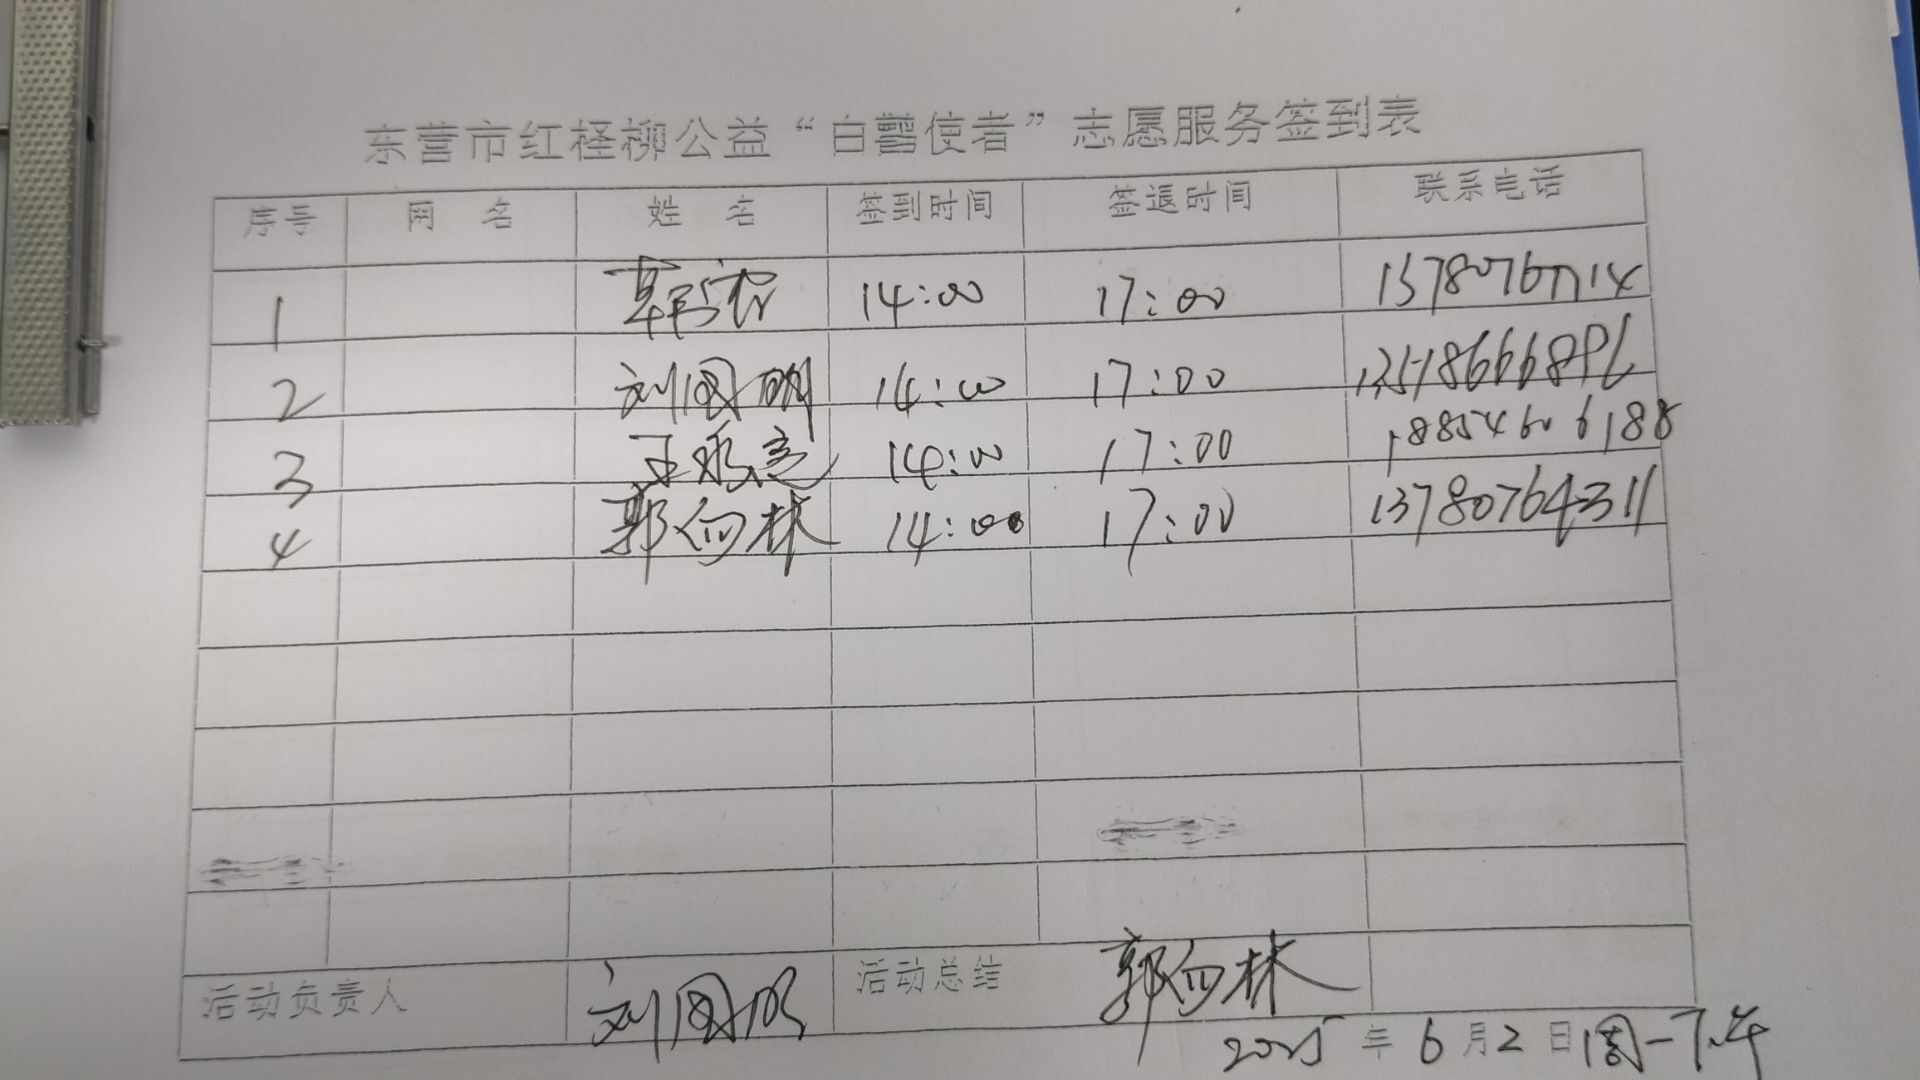 东营市红柽柳公益“白鹭使者”志愿服务签到表
序号 网 名 姓 名 签到时间 签退时间 联系电话
1 14:00 17:00
2 刘国明 14:00 17:00
3 王永亮 14:00 17:00 18854606188
4 郭向林 14:00 17:00 13780764311
活动负责人 刘国明 活动总结 郭向林
2025年6月2日周一下午